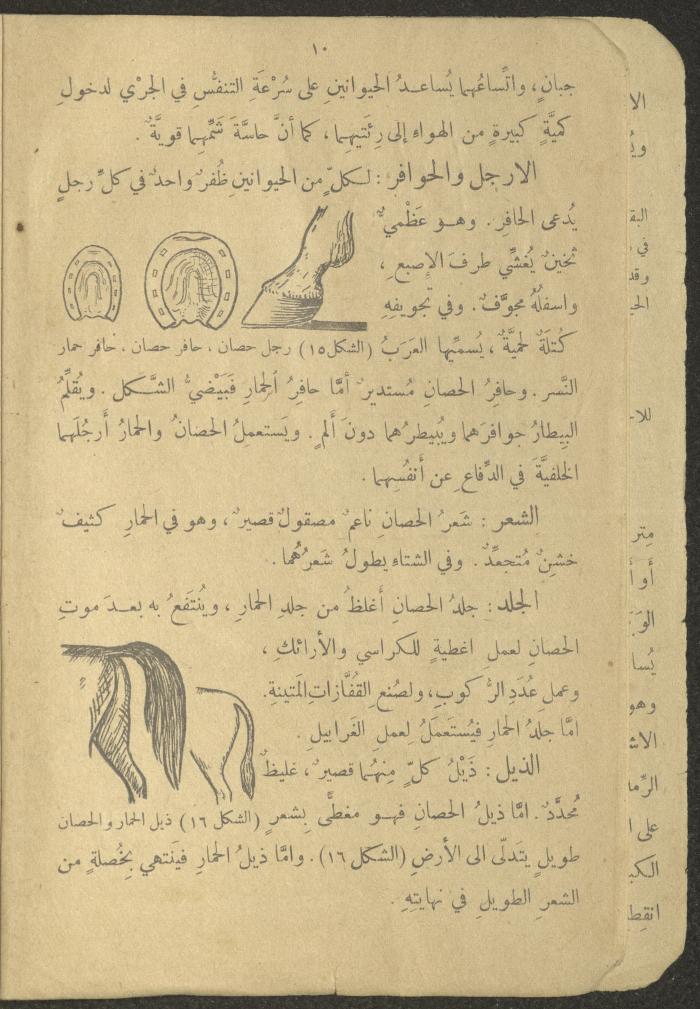 ١٠
جبانٍ، واتِّساعُهما يُساعدُ الحيوانينِ على سُرْعَةِ التنفسُّ في الجَرْي لدخولِ
كميَّةٍ كبيرةٍ من الهواءِ إلى رِئَتيهِما، كما أنَّ حاسَّةَ شَمِّهما قويَّةٌ.
الارجل والحوافر: لكلٍّ من الحيوانينِ ظُفرٌ واحدٌ في كلِّ رجلٍ
يُدعى الحافِرَ. وهو عَظْميٌّ
ثخينٌ يُغشّي طرفَ الإِصبعِ،
واسفلُهُ مجوَّفٌ. وفي تجويفِهِ
كُتلَةٌ لحميَّةٌ، يُسمِّيها العَرَبُ (الشكل ١٥) رجل حصان، حافر حصان، حافر حمار
النَّسر. وحافِرُ الحصانِ مُستديرٌ أمَّا حافِرُ الحِمارِ فَبَيْضيُّ الشَّكل. ويُقلِّمُ
البِيطارُ حوافرَهما ويُبيطرُهما دونَ أَلمٍ. ويَستعملُ الحصانُ والحمارُ أَرجُلَهما
الخلفيَّةَ في الدِّفاعِ عن أَنفُسِهما.
الشعر: شَعرُ الحصانِ ناعمٌ مصقولٌ قصيرٌ، وهو في الحمارِ كثيفٌ
خشِنٌ مُتجعِّدٌ. وفي الشتاءِ يطولُ شَعرُهُما.
الجلد: جلدُ الحصانِ أَغلظُ من جلدِ الحمارِ، ويُنتَفعُ به بعدَ موتِ
الحصانِ لعملِ اغطيةٍ للكراسي والأرائكِ،
وعملِ عُدَدِ الرُّكوبِ، ولصُنعِ القُفَّازاتِ المَتينةِ.
امَّا جلدُ الحمارِ فيُستَعمَلُ لِعملِ الغَرابيلِ.
الذيل: ذَيْلُ كلٍّ مِنهُما قصيرٌ، غليظٌ
مُحدَّدٌ. امَّا ذيلُ الحصانِ فهو مغطًّى بِشعرٍ (الشكل ١٦) ذيل الحمار والحصان
طويلٍ يتَدلّى الى الأرضِ (الشكل ١٦). وامَّا ذيلُ الحمارِ فيَنتهي بخُصلةٍ من
الشعرِ الطويلِ في نهايتِهِ.